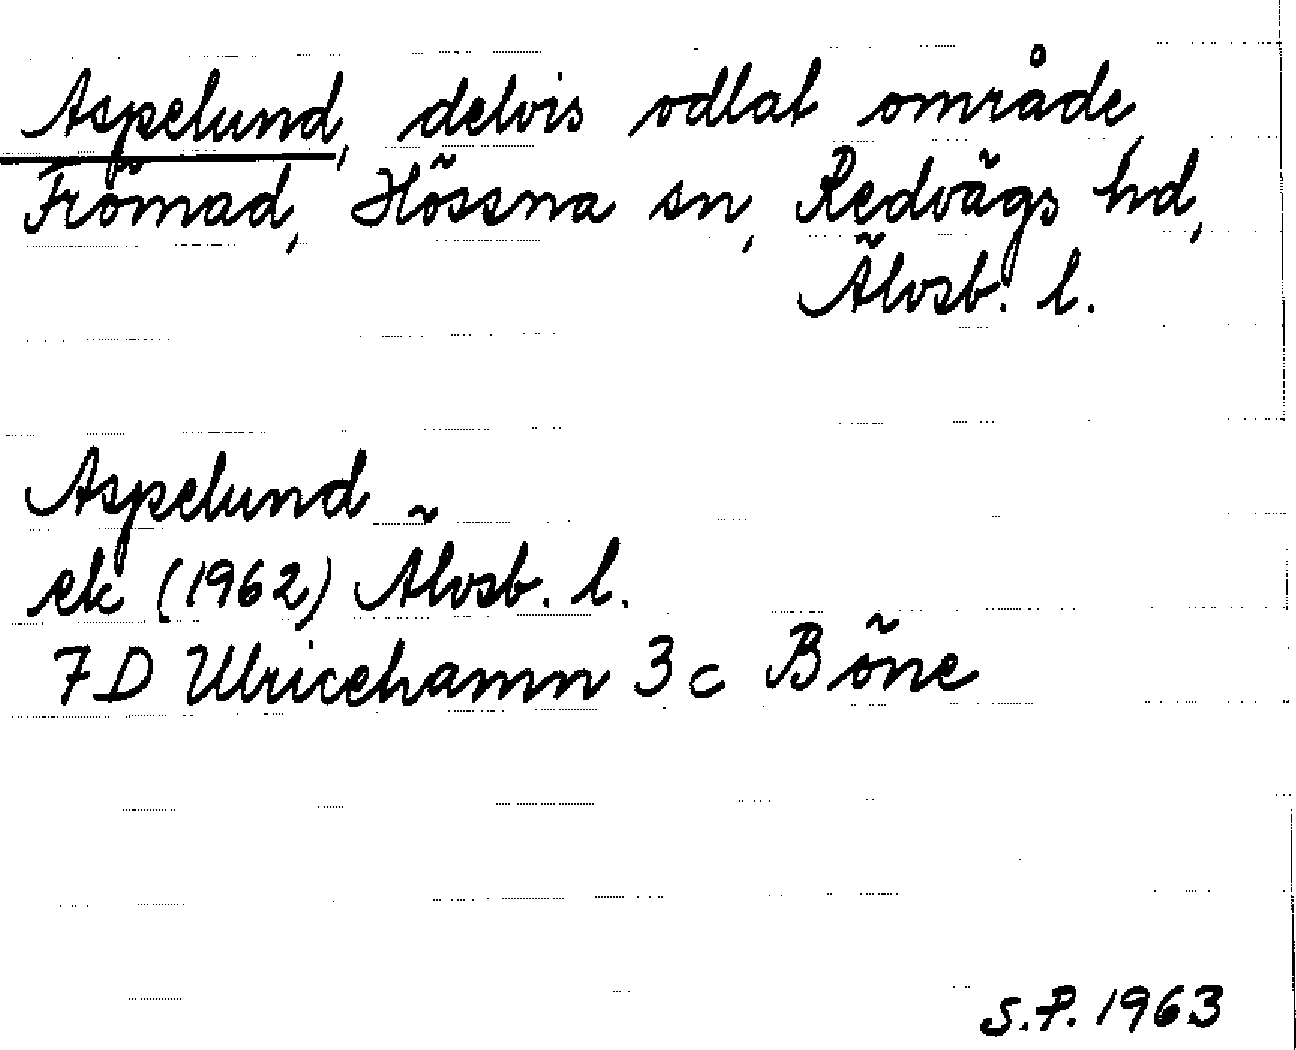 Aspelund, delvis odlat område,
Frömad, Hössna sn, Redvägs hd,
Älvsb. l.
Aspelund
ek (1962) Älvsb. l.
7D Ulricehamn 3c Böne
S.P. 1963